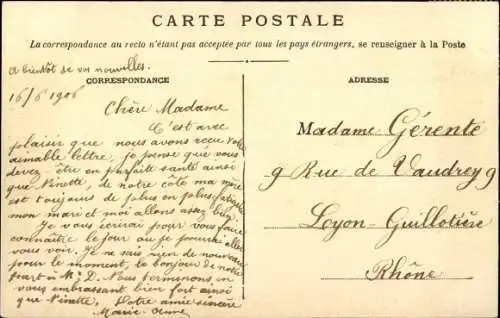 CARTE POSTALE
La correspondance au recto n'étant pas acceptée par tous les pays étrangers, se renseigner à la Poste
A bientôt de vos nouvelles.
CORRESPONDANCE
ADRESSE
16/6 1906
Chère Madame
C'est avec
plaisir que nous avons reçu votre
aimable lettre, je pense que vous
devez-être en parfaite santé ainsi
que Ninette, de notre côté ma mère
est toujours de plus en plus
mon mari et moi allons assez bien.
Je vous écrirai pour vous faire
connaître le jour où je pourrai aller
vous voir. Je ne sais rien de nouveau
pour le moment, le bonjour de notre
part à Mr D. Nous terminons en
vous embrassant bien fort ainsi
que Ninette. Votre amie sincère
Marie-Anne
Madame Gérente
9 Rue de Vaudrey 9
Lyon-Guillotière
Rhône